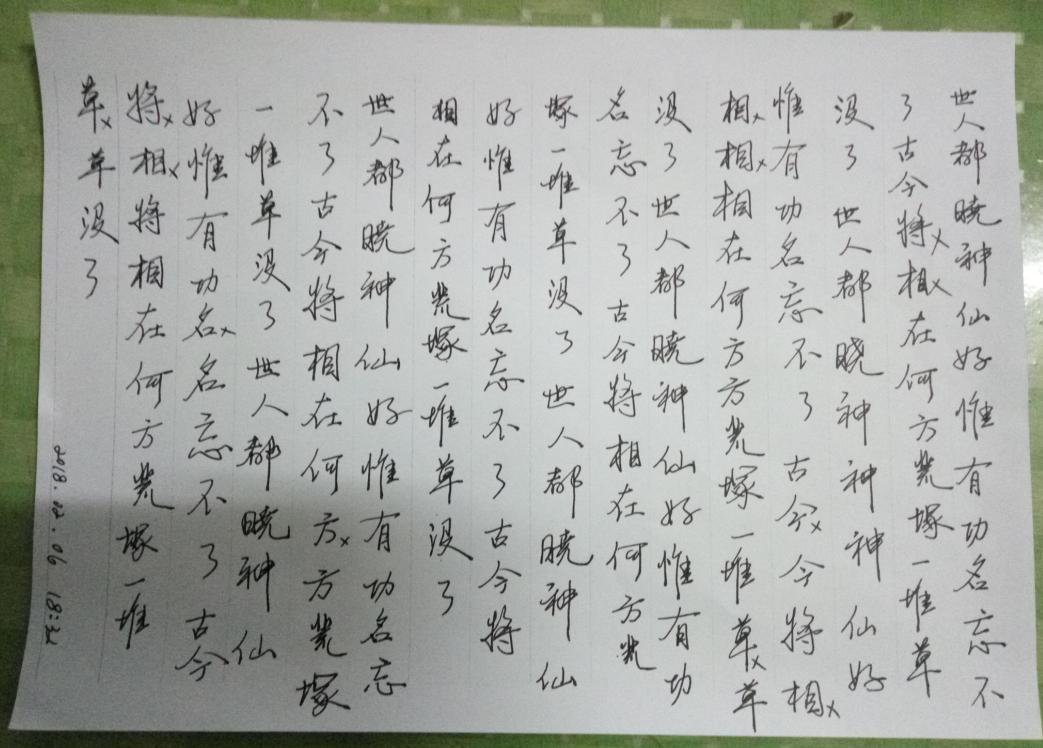 世人都曉神仙好惟有功名忘不
了古今将x相x在何方荒塚一堆草
没了世人都晓神神神仙好
惟有功名忘不了古今x今将相x
相x相x相在何方方荒塚一堆草x草
没了世人都曉神仙好惟有功
名忘不了古今将相在何方荒
塚一堆草没了世人都曉神仙
好惟有功名忘不了古今将
相在何方荒塚一堆草没了
世人都曉神仙好惟有功名忘
不了古今将相在何方x方荒塚
一堆草没了世人都曉神仙
好惟有功名x名忘不了古今
将x相x将相在何方荒塚一堆
草x草没了